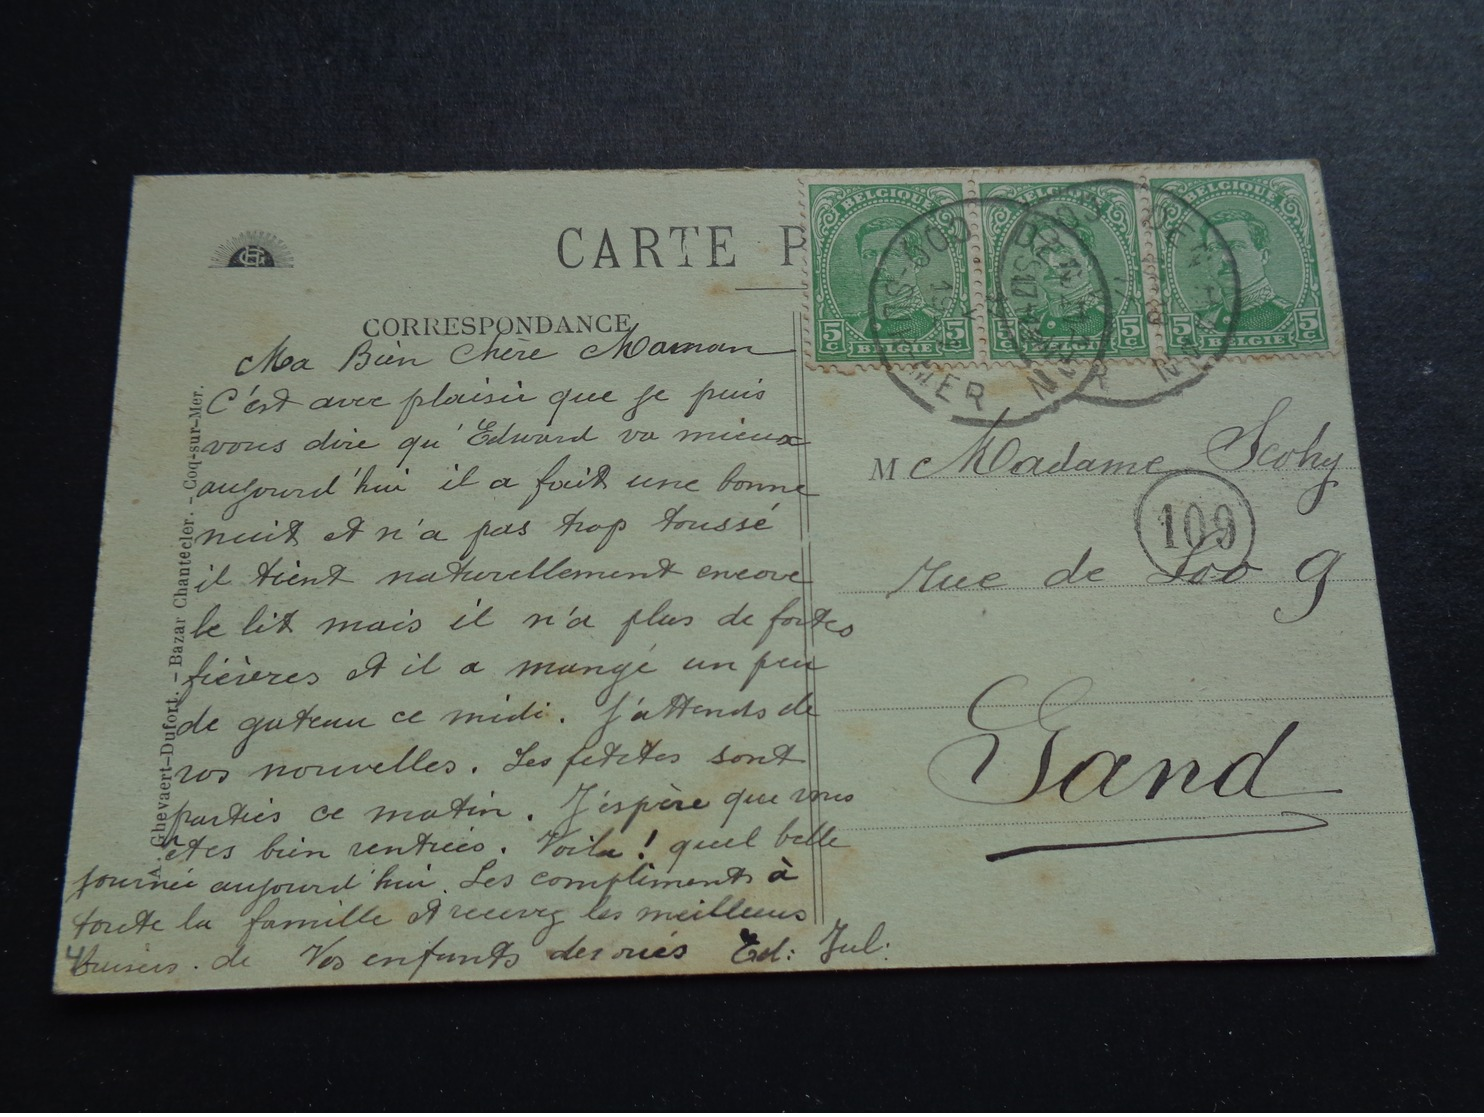 CARTE P
CORRESPONDANCE
Ma Bien Chère Maman
C'est avec plaisir que je puis
vous dire qu'Edward va mieux
aujourd'hui il a fait une bonne
nuit et n'a pas trop toussé
il tient naturellement encore
le lit mais il n'a plus de fortes
fièvres et il a mangé un peu
de gateau ce midi. J'attends de
vos nouvelles. Les petites sont
parties ce matin. J'espère que vous
êtes bien rentrées. Voila! quel belle
journée aujourd'hui. Les compliments à
toute la famille et recevez les meilleurs
Baisers. de Vos enfants dévoués Ed: Jul:
A. Ghevaert-Dufort. - Bazar Chantecler. - Coq-sur-Mer.
BELGIQUE
5c 5c
BELGIE
BELGIQUE
5c 5c
BELGIE
BELGIQUE
5c 5c
BELGIE
M Madame Scohy
109
Rue de Loo 9
Gand